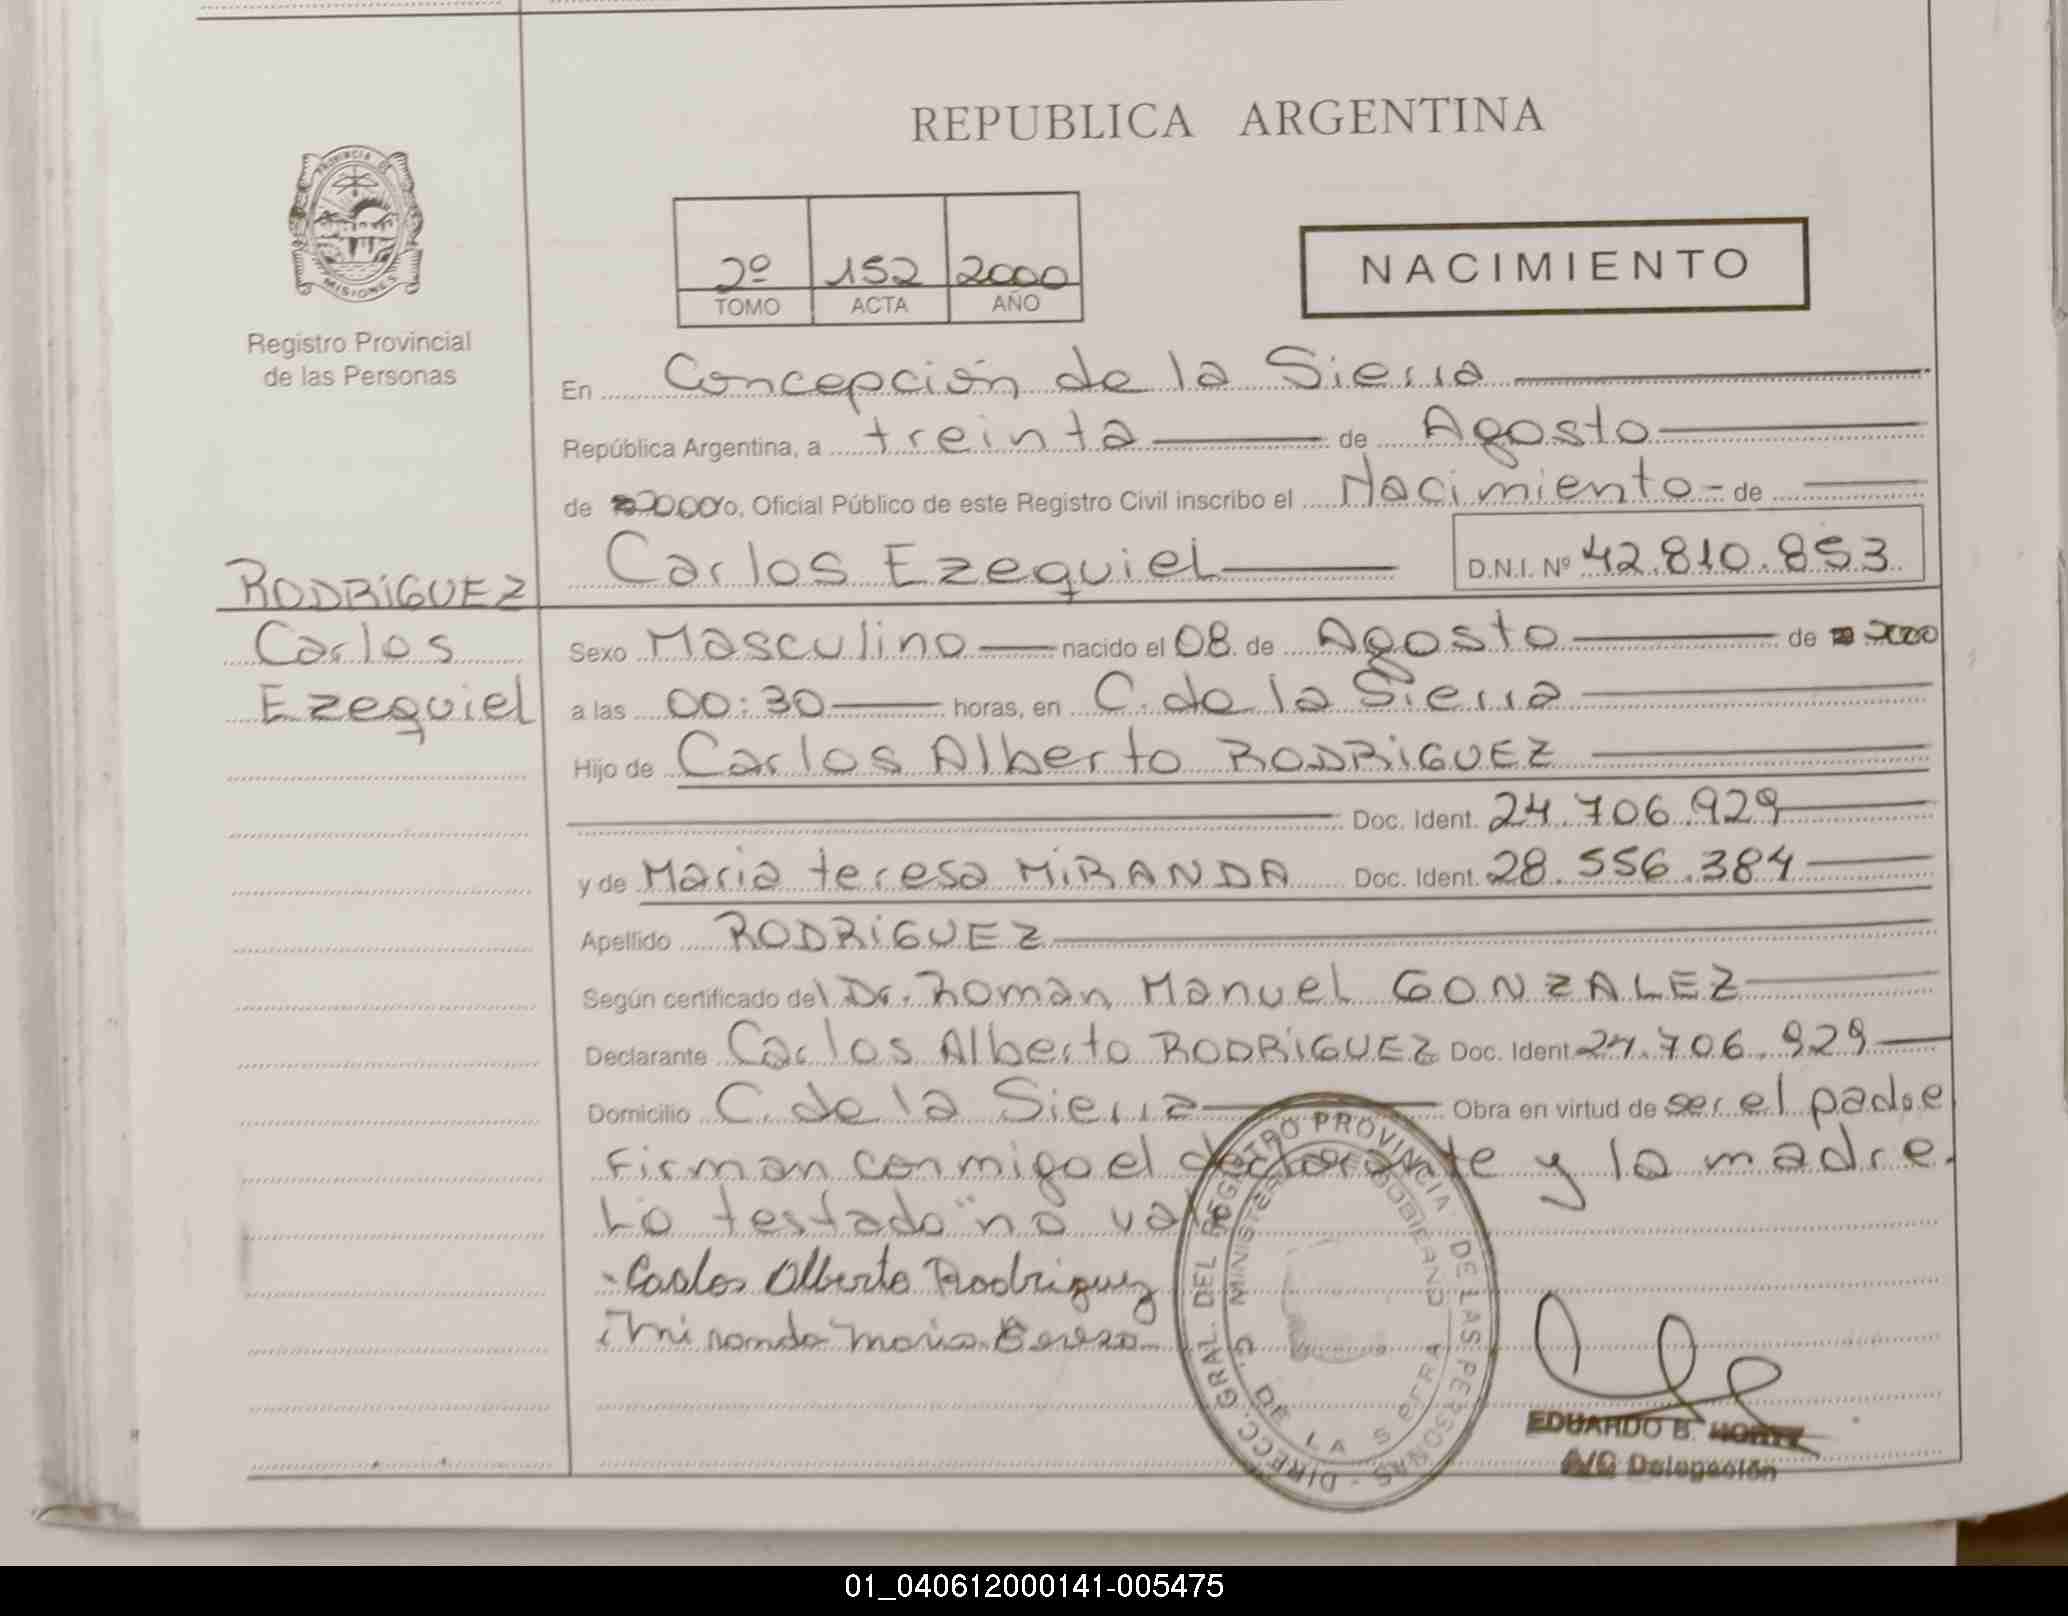 REPUBLICA ARGENTINA
PROVINCIA DE
MISIONES
Registro Provincial
de las Personas
2º 152 2000
TOMO ACTA AÑO
NACIMIENTO
En Concepción de la Sierra
República Argentina, a treinta de Agosto
de 2000 o, Oficial Público de este Registro Civil inscribo el Nacimiento - de
Carlos Ezequiel D.N.I. Nº 42.810.853
RODRIGUEZ
Carlos
Ezequiel
Sexo Masculino nacido el 08 de Agosto de 2000
a las 00:30 horas, en C. de la Sierra
Hijo de Carlos Alberto RODRIGUEZ
Doc. Ident. 24.706.929
y de Maria teresa MIRANDA Doc. Ident. 28.556.384
Apellido RODRIGUEZ
Según certificado del Dr. Roman Manuel GONZALEZ
Declarante Carlos Alberto RODRIGUEZ Doc. Ident. 24.706.929
Domicilio C. de la Sierra Obra en virtud de ser el padre
Firman conmigo el declarante y la madre.
Lo testado "no vale
Carlos Alberto Rodriguez
Miranda Maria Teresa
DIRECC. GRAL. DEL REGISTRO PROVINCIAL DE LAS PERSONAS -
MINISTERIO DE GOBIERNO
C. DE LA SIERRA
EDUARDO B.
A/C Delegación
01_040612000141-005475